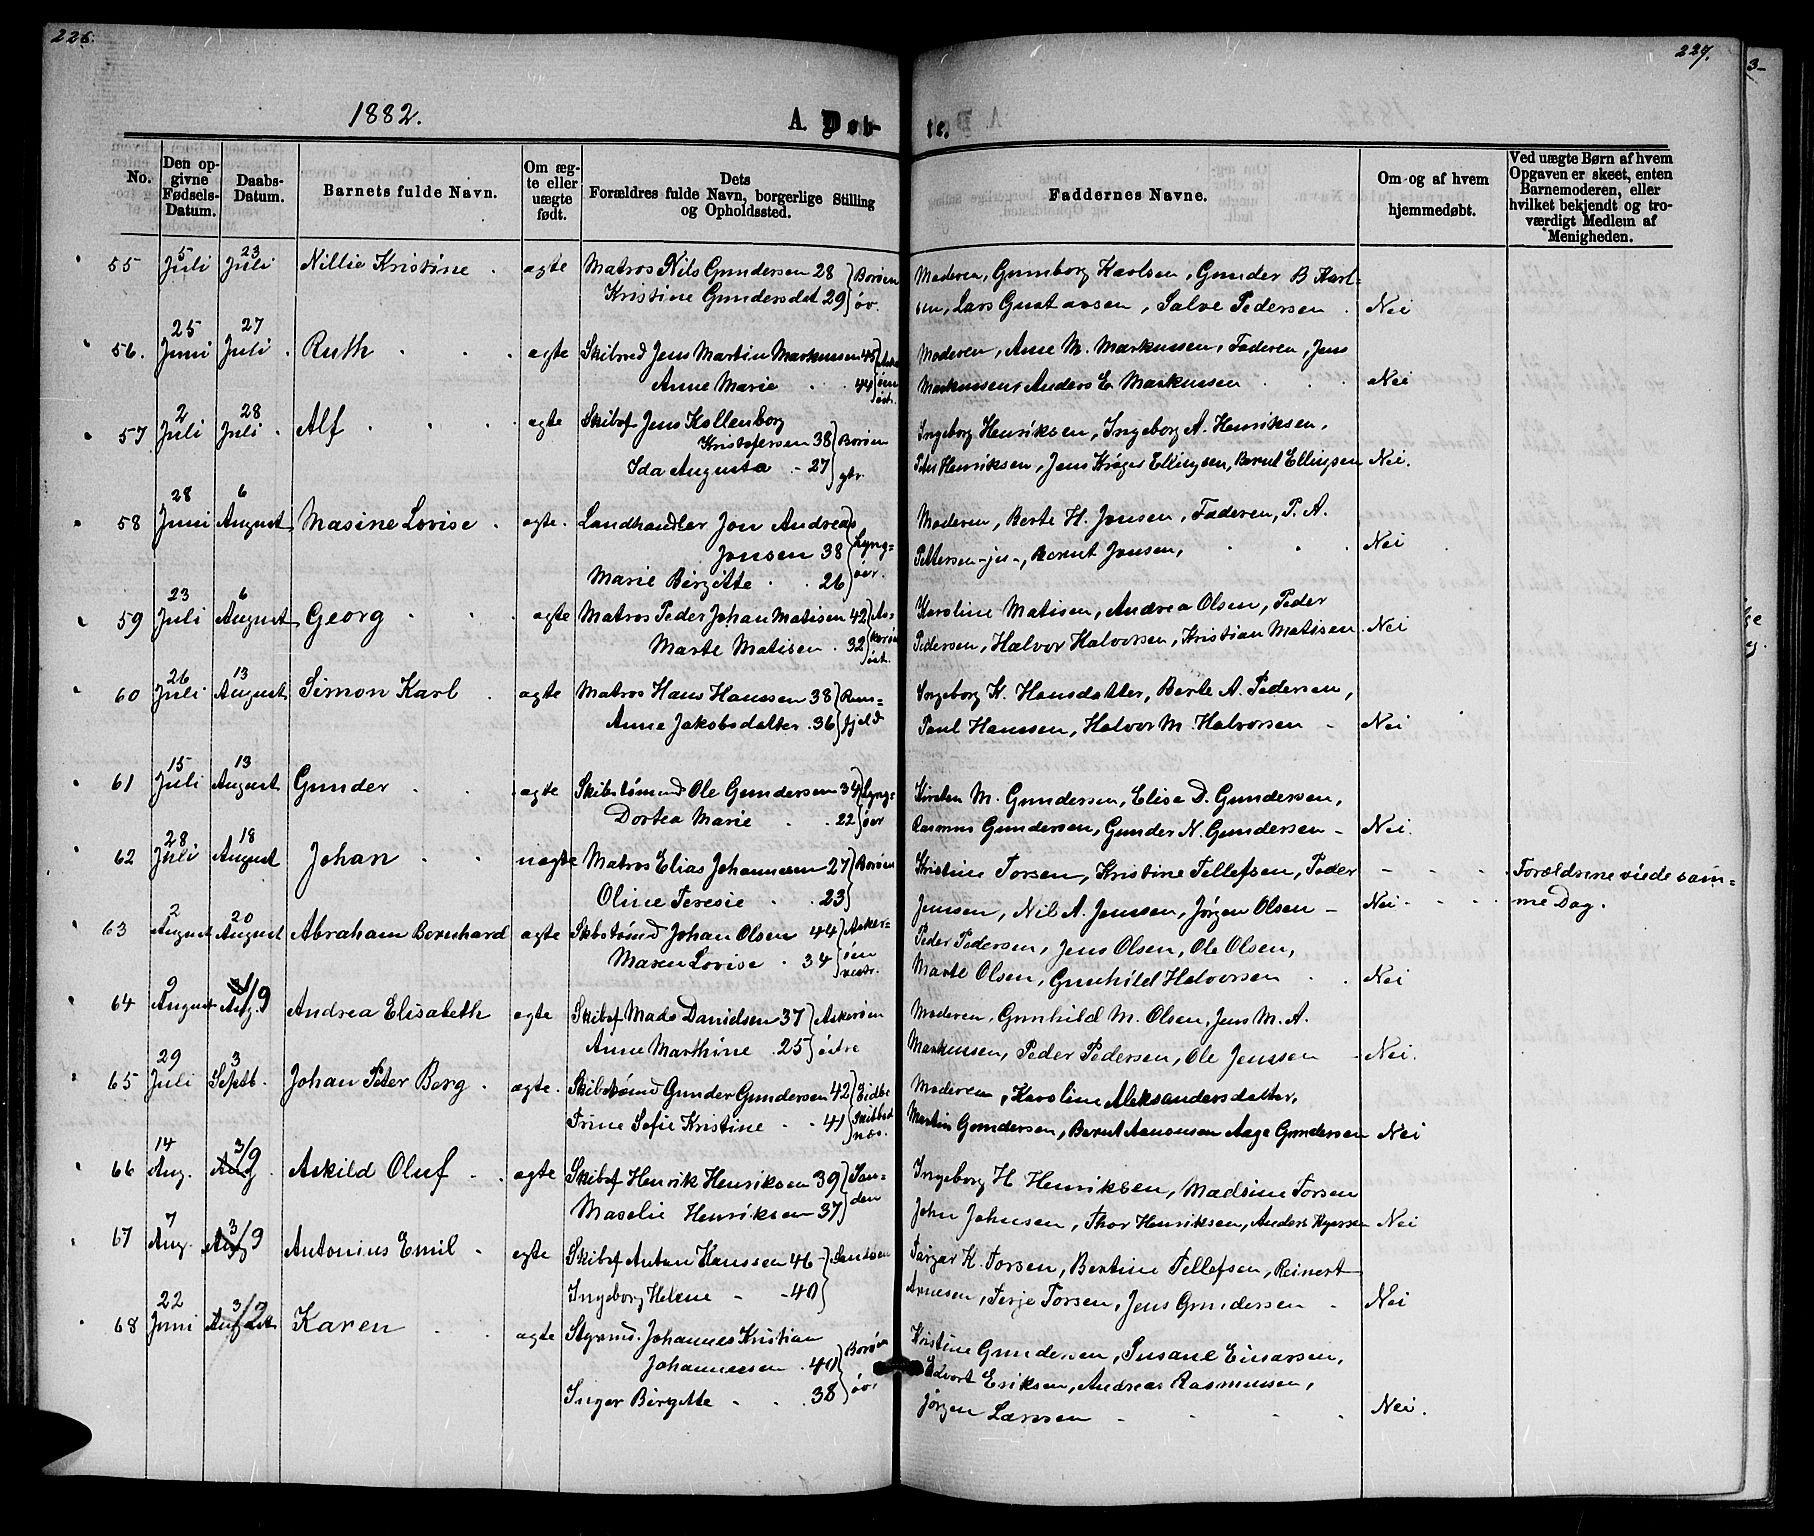 226.
227.
3-
1882.
A. Døb-
te.
No.
Den opgivne Fødsels-Datum.
Daabs-Datum.
Barnets fulde Navn.
Om ægte eller uægte født.
Dets Forældres fulde Navn, borgerlige Stilling og Opholdssted.
Faddernes Navne.
Om og af hvem hjemmedøbt.
Ved uægte Børn af hvem Opgaven er skeet, enten Barnemoderen, eller hvilket bekjendt og troværdigt Medlem af Menigheden.
55 5 Juli 23 Juli Nillie Kristine ægte Matros Nils Gundersen 28 Borøen Moderen, Gunnborg Karlsen, Gunder B Karl=
Kristine Gundersdat 29 øv. sen, Lars Gustavsen, Salve Pedersen Nei
56. 25 Juni 27 Juli Ruth ægte Skibsred Jens Martin Markussen 45 Moderen, Anne M. Markussen, Faderen, Jens
Anne Marie 44 østr. Markussen, Anders E. Markussen Nei
57 2 Juli 28 Juli Alf ægte Skibsf Jens Kollenborg Ingeborg Henriksen, Ingeborg A. Henriksen,
Kristofersen 38 Borøen
Ida Augusta 27 ytr. Peter Henriksen, Jens Krøger Ellingsen, Bernt Ellingsen Nei.
58 28 Juni 6 August Masine Lovise ægte. Landhandler Jon Andreas Moderen, Berte H. Jonsen, Faderen, P. A.
Jonsen 38 Lyng=
Marie Birgitte 26 øer. Pettersen -, Bernt Jonsen, Nei
59 23 Juli 6 August Georg ægte Matros Peder Johan Matisen 42 As= Karoline Matisen, Andrea Olsen, Peder
Marte Matisen 32 kerøen øst. Pedersen, Halvor Halvorsen, Kristian Matisen Nei
60 26 Juli 13 August Simon Karl ægte Matros Hans Hanssen 38 Ingeborg K. Hansdatter, Berte A. Pedersen,
Anne Jakobsdatter 36 fjeld Paul Hanssen, Halvor M. Halvorsen Nei
61 15 Juli 13 August Gunder ægte Skibstømmd Ole Gundersen 34 Lyng= Kirsten M. Gundersen, Elise D. Gundersen,
Dortea Marie 22 øer Rasmus Gundersen, Gunder N. Gundersen Nei.
62 28 Juli 18 August Johan uægte Matros Elias Johannesen 27 Borøen Kristine Torsen, Kristine Tellefsen, Peder Forældrene viede sam=
Oline Teresie 23 Jenssen, Nil A. Jenssen, Jørgen Olsen Nei me Dag.
63 2 August 20 August Abraham Bernhard ægte Skbstømd Johan Olsen 44 Asker= Peder Pedersen, Jens Olsen, Ole Olsen,
Maren Lovise 34 øen vestr. Marte Olsen, Gunhild Halvorsen Nei
64 9 August Aug. /9 Andrea Elisabeth ægte Skibsf Mads Danielsen 37 Askerøen Moderen, Gunhild M. Olsen, Jens M. A.
Anne Marthine 25 østre Markussen, Peder Pedersen, Ole Jenssen Nei.
65 29 Juli 3 Septb. Johan Peter Berg ægte. Skibstømd Gunder Gundersen 42 Eidbo Moderen, Karoline Aleksandersdatter,
Trine Sofie Kristine 41 Skibbst næs. Martin Gundersen, Bernt Aanonsen Aage Gundersen Nei
66 14 Aug. 3/9 Aug Askild Oluf ægte Skibsf Henrik Henriksen 39 San= Ingeborg H Henriksen, Madsine Torsen
Maselie Henriksen 37 den John Johnsen, Thor Henriksen, Anders Nei
67 7 Aug. 3/9 Aug Antonius Emil ægte Skibsf Anton Hanssen 46 Sandøen Targar K. Torsen, Bertine Tellefsen, Reinert
Ingeborg Helene 40 Arnesen, Terje Torsen, Jens Gundersen Nei
68 22 Juni 3/9 Karen ægte Styrmd. Johannes Kristian Kristine Gundersen, Susane Einarsen,
Johannessen 40 Borøen Edvart Eriksen, Andreas Rasmussen,
Inger Birgitte 38 øv. Jørgen Larssen Nei.